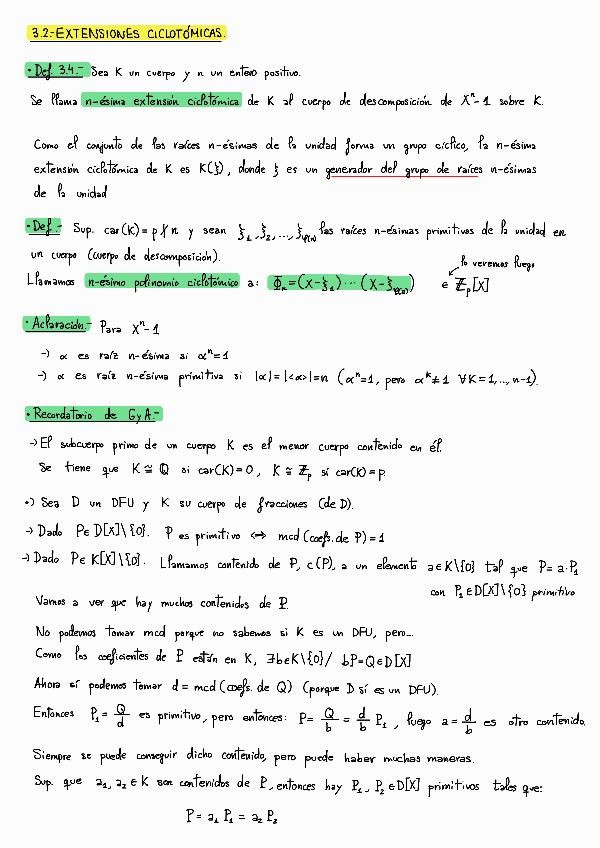 3.2.- EXTENSIONES CICLOTÓMICAS.
• Def. 3.4.- Sea K un cuerpo y n un entero positivo.
Se llama n-ésima extensión ciclotómica de K al cuerpo de descomposición de Xⁿ-1 sobre K.
Como el conjunto de las raíces n-ésimas de la unidad forma un grupo cíclico, la n-ésima
extensión ciclotómica de K es K(ξ), donde ξ es un generador del grupo de raíces n-ésimas
de la unidad
• Def.- Sup. car(K) = p ∤ n y sean ξ₁, ξ₂, ..., ξφ(n) las raíces n-ésimas primitivas de la unidad en
un cuerpo (cuerpo de descomposición).
lo veremos luego
Llamamos n-ésimo polinomio ciclotómico a: Φₙ = (X-ξ₁) ··· (X-ξφ(n)) ∈ ℤₚ[X]
• Aclaración.- Para Xⁿ-1
→) α es raíz n-ésima si αⁿ=1
→) α es raíz n-ésima primitiva si |α| = |<α>| = n (αⁿ=1, pero αᵏ≠1 ∀K=1,..., n-1).
• Recordatorio de GyA.-
→ El subcuerpo primo de un cuerpo K es el menor cuerpo contenido en él.
Se tiene que K ≅ ℚ si car(K)=0, K ≅ ℤₚ si car(K)=p.
•) Sea D un DFU y K su cuerpo de fracciones (de D).
→ Dado P∈D[X]\{0}. P es primitivo ⟺ mcd (coefs. de P) = 1
→ Dado P∈ K[X]\{0}. Llamamos contenido de P, c(P), a un elemento a∈K\{0} tal que P= a·P₁
con P₁∈D[X]\{0} primitivo
Vamos a ver que hay muchos contenidos de P.
No podemos tomar mcd porque no sabemos si K es un DFU, pero...
Como los coeficientes de P están en K, ∃b∈K\{0} / bP=Q∈D[X]
Ahora sí podemos tomar d = mcd (coefs. de Q) (porque D sí es un DFU).
Entonces P₁ = Q/d es primitivo, pero entonces: P = Q/b = d/b P₁, luego a = d/b es otro contenido.
Siempre se puede conseguir dicho contenido, pero puede haber muchas maneras.
Sup. que a₁, a₂ ∈ K son contenidos de P, entonces hay P₁, P₂∈D[X] primitivos tales que:
P = a₁ P₁ = a₂ P₂